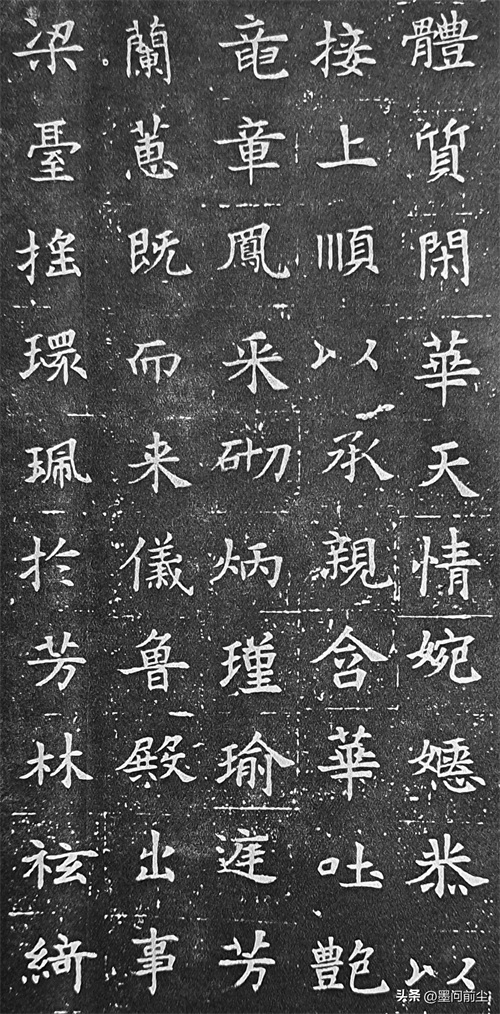 體質閑華天情婉嫕恭以
接上順以承親含華吐艷
竜章鳳采砌炳瑾瑜庭芳
蘭蕙既而来儀魯殿出事
梁臺搖環珮於芳林袨綺
头条 @墨问前尘